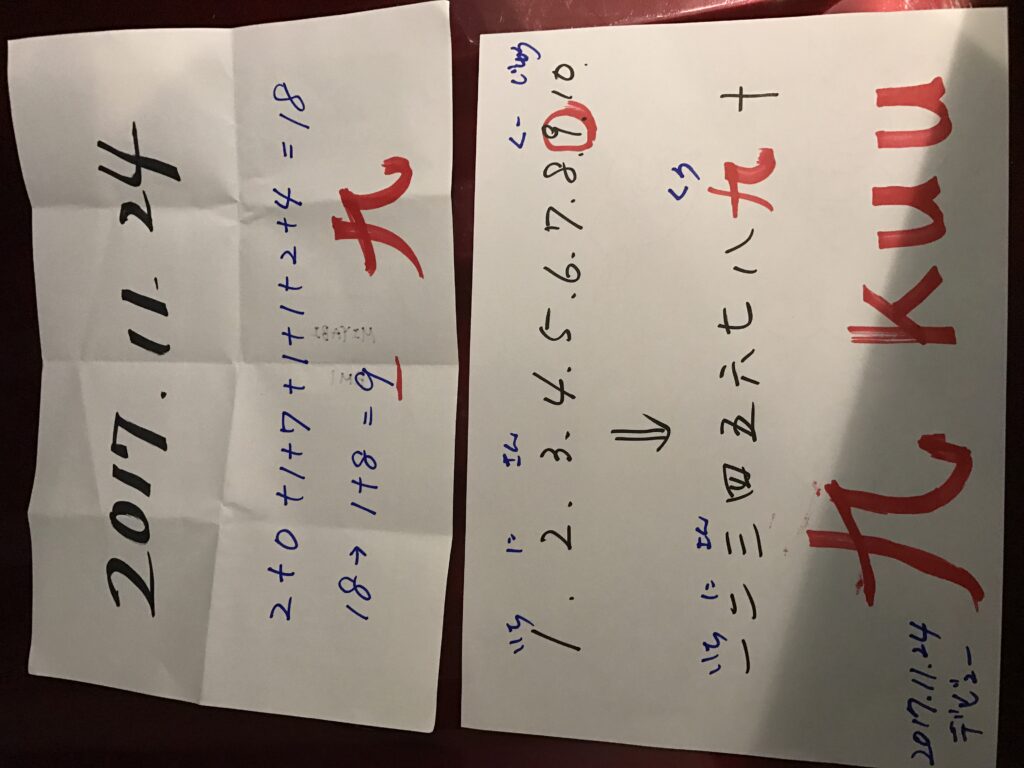 2017.11.24
2+0+1+7+1+1+2+4=18
18→1+8=9
九
いち に さん くー じゅう
1.2.3.4.5.6.7.8.9.10.
⇓
いち に さん くう
一二三四五六七八九十
九 KUU
2017.11.24
デビュー